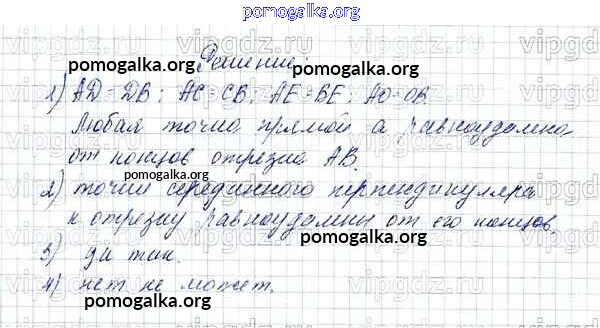 pomogalka.org
Решение:
pomogalka.org
1) AD=DB; AC=CB; AE=BE; AO=OB.
pomogalka.org
Любая точка прямой a равноудалена
от концов отрезка AB.
pomogalka.org
2) точки серединного перпендикуляра
к отрезку равноудалены от его концов.
pomogalka.org
3) да так.
4) нет не может.
pomogalka.org
vipgdz.ru